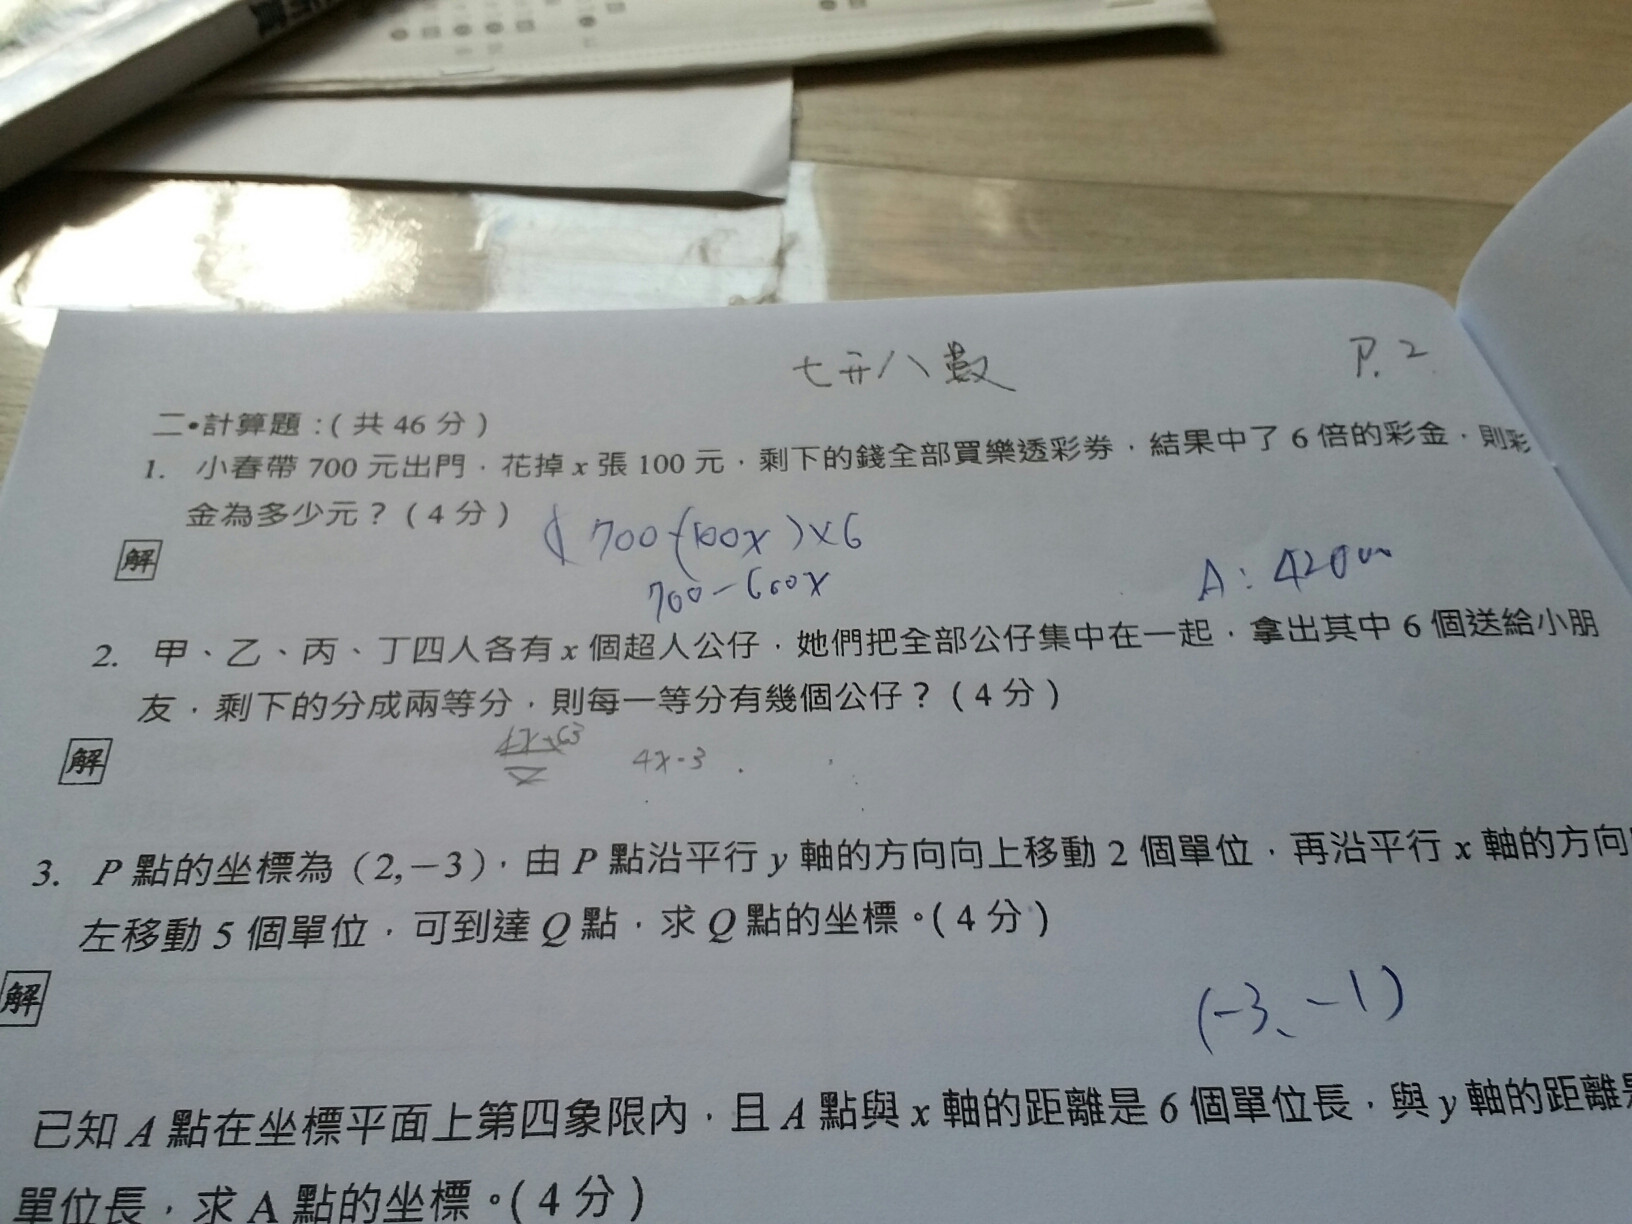 七升八數 P.2
二•計算題:(共46分)
1. 小春帶 700 元出門,花掉 x 張 100 元,剩下的錢全部買樂透彩券,結果中了 6 倍的彩金,則彩
金為多少元?(4分)
解
(700-(100x)×6
700-600x
A:
2. 甲、乙、丙、丁四人各有 x 個超人公仔,她們把全部公仔集中在一起,拿出其中 6 個送給小朋
友,剩下的分成兩等分,則每一等分有幾個公仔?(4分)
解
4x-3
3. P 點的坐標為(2,-3),由 P 點沿平行 y 軸的方向向上移動 2 個單位,再沿平行 x 軸的方向
左移動 5 個單位,可到達 Q 點,求 Q 點的坐標。(4分)
解
(-3、-1)
已知 A 點在坐標平面上第四象限內,且 A 點與 x 軸的距離是 6 個單位長,與 y 軸的距離是
單位長,求 A 點的坐標。(4分)